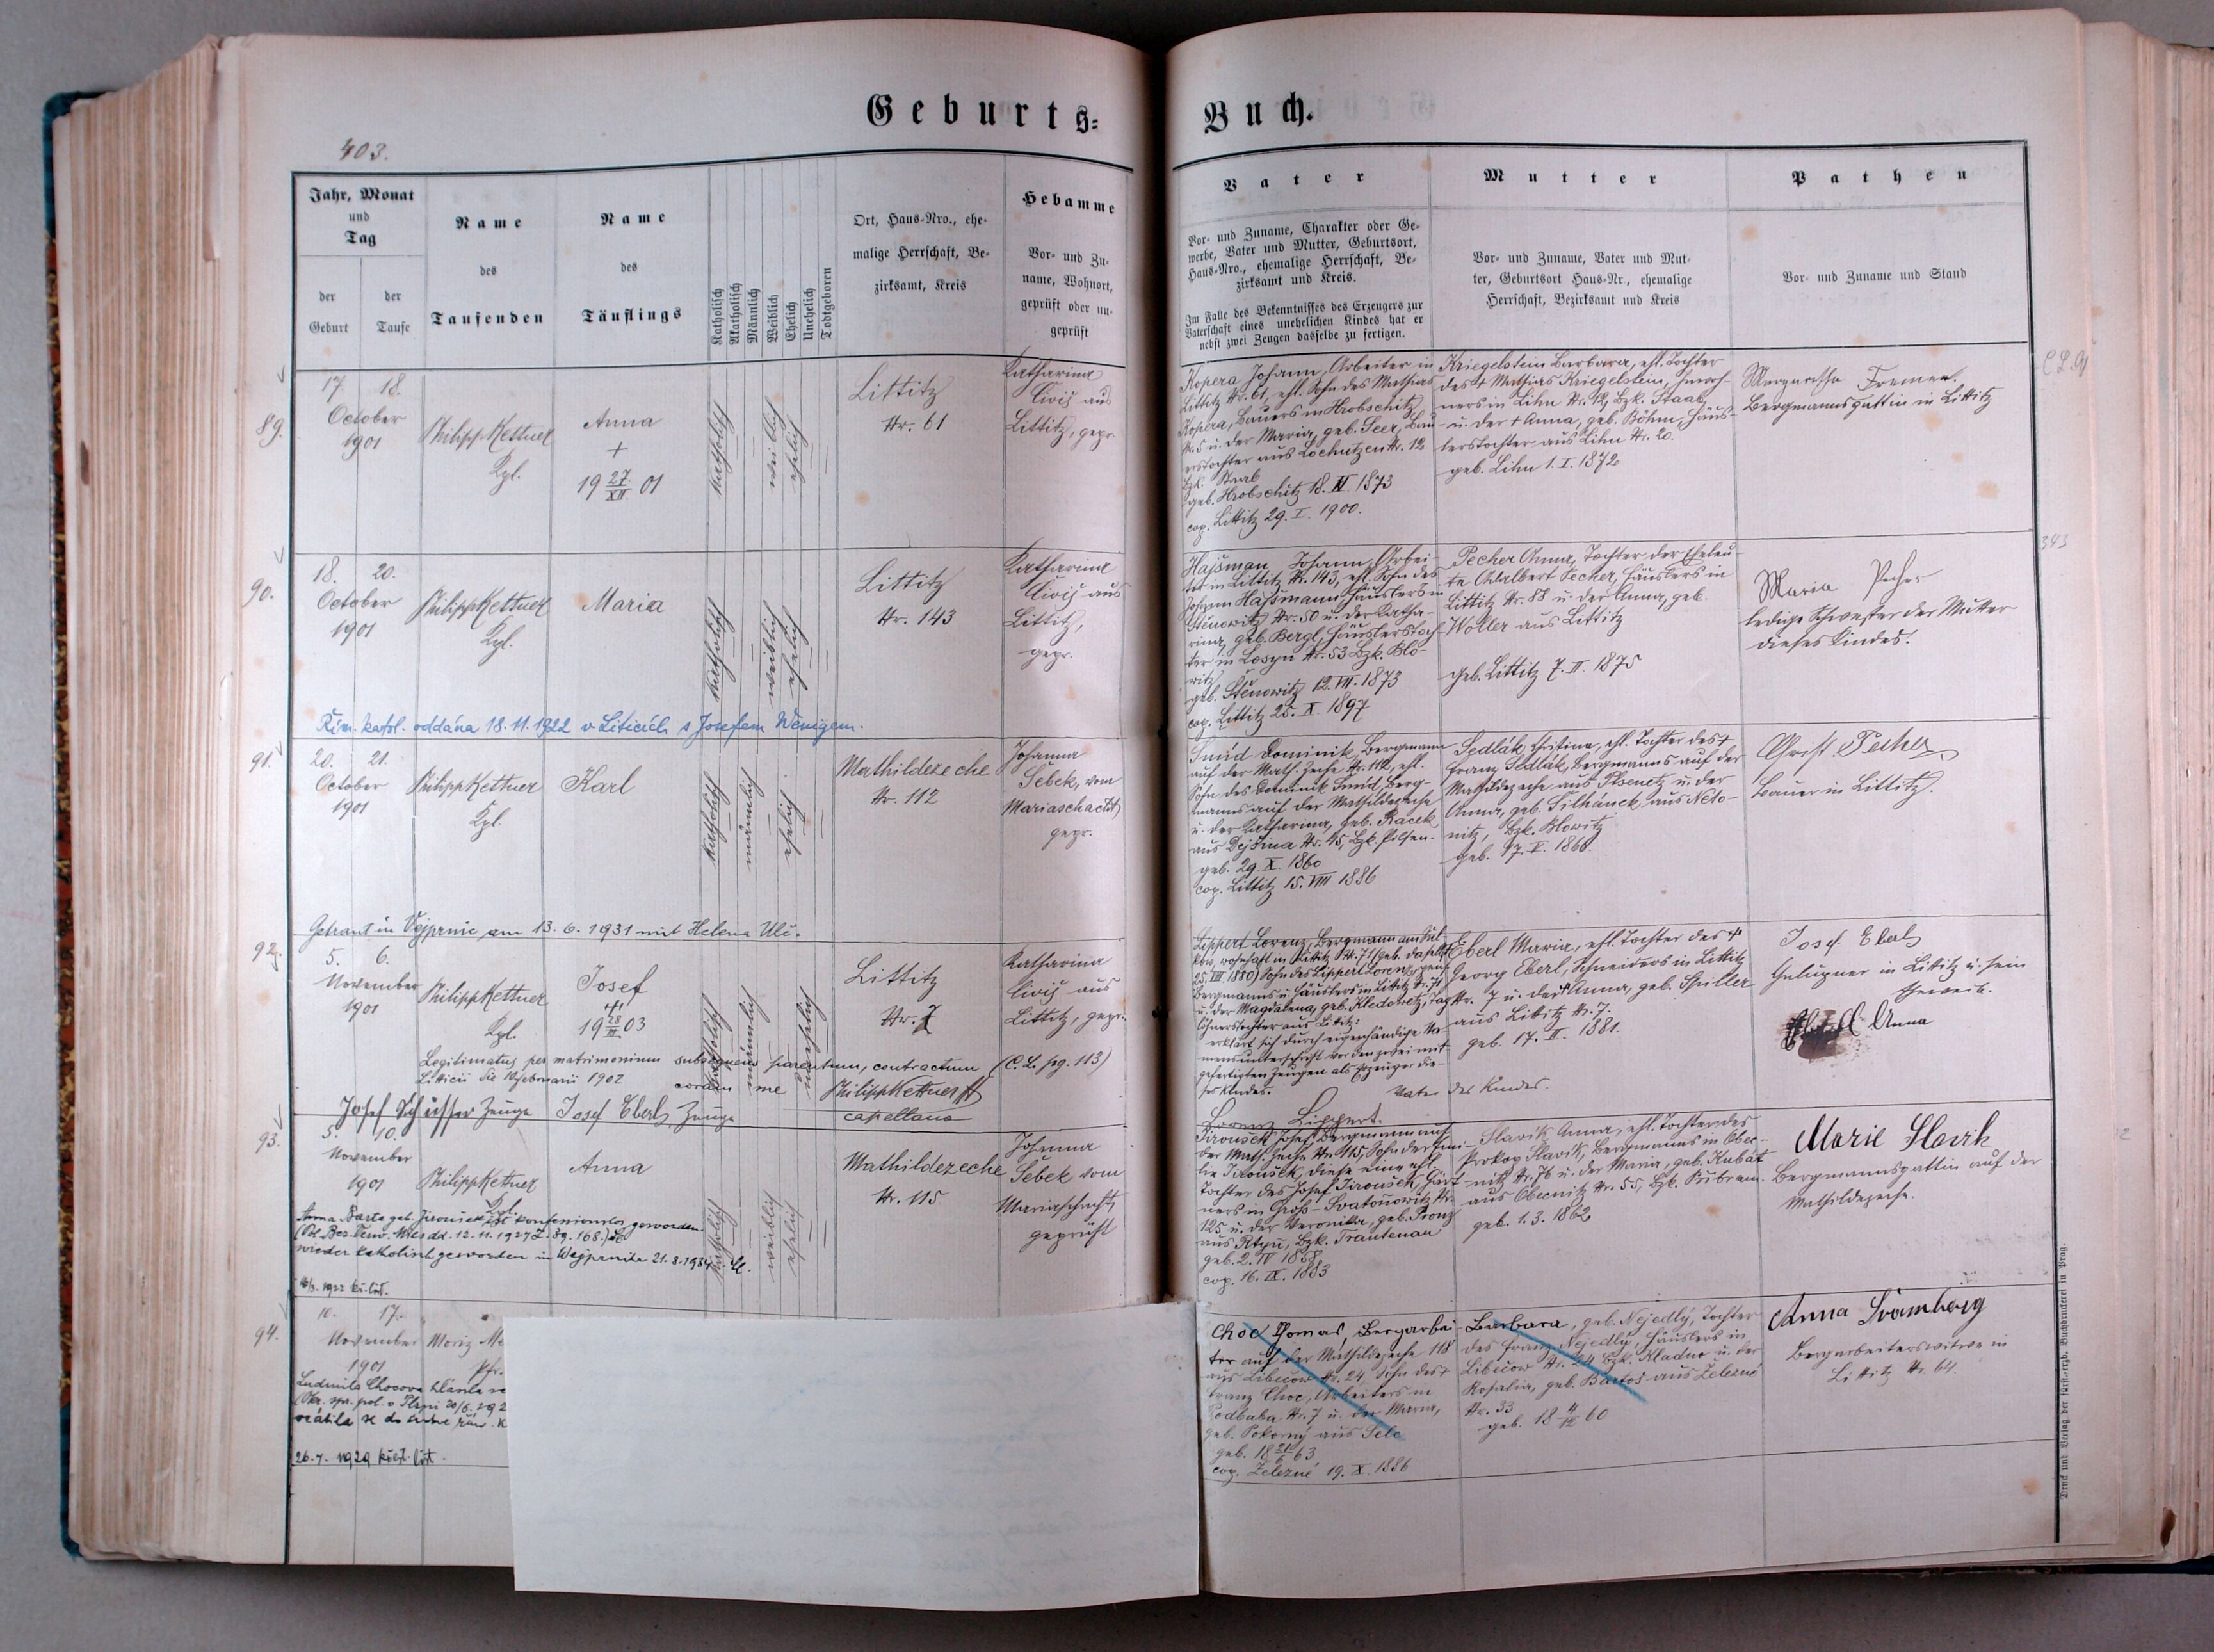 Geburts=
Buch.
403.
Jahr, Monat
und
Tag
der
Geburt
der
Taufe
Name
des
Taufenden
Name
des
Täuflings
Katholisch
Akatholisch
Männlich
Weiblich
Ehelich
Unehelich
Todtgeboren
Ort, Haus-Nro., ehe-
malige Herrschaft, Be-
zirksamt, Kreis
Hebamme
Vor- und Zu-
name, Wohnort,
geprüft oder un-
geprüft
Vater
Vor- und Zuname, Charakter oder Ge-
werbe, Vater und Mutter, Geburtsort,
Haus-Nro., ehemalige Herrschaft, Be-
zirksamt und Kreis.
Im Falle des Bekenntnisses des Erzeugers zur
Vaterschaft eines unehelichen Kindes hat er
nebst zwei Zeugen dasselbe zu fertigen.
Mutter
Vor- und Zuname, Vater und Mut-
ter, Geburtsort Haus-Nr., ehemalige
Herrschaft, Bezirksamt und Kreis
Pathen
Vor- und Zuname und Stand
89.
17. 18.
October
1901
Philipp Kettner
Kpl.
Anna
+
19 27/XII 01
katholisch
weiblich
ehelich
Littitz
Nr. 61
Katharina
aus
Littitz, gepr.
Kopera Johann, Arbeiter in
Littitz Nr. 61, ehl. Sohn des Mathias
Kopera, Bauers in Hrobschitz
Nr. 5 u. der Maria, geb. Seer, Bau-
erstochter aus Lochutzen Nr. 12
Bzk. Staab
geb. Hrobschitz 18. XI. 1873
cop. Littitz 29. I. 1900.
Kriegelstein Barbara, ehl. Tochter
des + Mathias Kriegelstein,
in Lihn Nr. 12, Bzk. Staab,
u. der + Anna, geb. Böhm, Häus-
lerstochter aus Lihn Nr. 20.
geb. Lihn 1. I. 1872
Margaretha
Bergmannsgattin in Littitz
90.
18. 20.
October
1901
Philipp Kettner
Kpl.
Maria
katholisch
weiblich
ehelich
Littitz
Nr. 143
Katharina
aus
Littitz,
gepr.
Hajšman Johann, Arbei-
ter in Littitz Nr. 143, ehl. Sohn des
Johann Hajšmann Häuslers in
Stěnowitz Nr. 50 u. der Katha-
rina, geb. Bergl, Häuslerstoch-
ter in Losyn Nr. 53 Bzk. Blo-
witz
geb. Stěnowitz 12. VII. 1873
cop. Littitz 25. X. 1897
Pecher Anna, Tochter der Eheleu-
te Adalbert Pecher, Häuslers in
Littitz Nr. 88 u. der Anna, geb.
Woller aus Littitz
geb. Littitz 7. II. 1875
Maria Pecher
ledige Schwester der Mutter
dieses Kindes.
343
Řím. katol. oddána 18.11.1922 v Liticích s Josefem Wenigem.
91.
20. 21.
October
1901
Philipp Kettner
Kpl.
Karl
katholisch
männlich
ehelich
Mathildezeche
Nr. 112
Johanna
Šebek, vom
Mariaschacht,
gepr.
Šmíd Dominik, Bergmann
auf der Math. Zeche Nr. 112, ehl.
Sohn des Dominik Šmíd, Berg-
manns auf der Mathildezeche
u. der Katharina, geb. Racek
aus Dejšina Nr. 45, Bzk. Pilsen.
geb. 29. X. 1860
cop. Littitz 15. VIII 1886
Sedlák Christina, ehl. Tochter des +
Franz Sedlák, Bergmanns auf der
Mathildezeche aus Plsenetz u. der
Anna, geb. Šilhánek, aus Neto-
nitz, Bzk. Blowitz
Christ. Pecher
Bauer in Littitz.
Getraut in Vejprnic am 13.6.1931 mit Helena Ulč.
92.
5. 6.
November
1901
Philipp Kettner
Kpl.
Josef
+
19 28/III 03
katholisch
männlich
unehelich
Littitz
Nr. 7
Katharina
aus
Littitz, gepr.
Lippert Lorenz, Bergmann am
wohnhaft in Littitz Nr. 71 (geb. daselbst
25. VIII. 1880) Sohn des Lippert Lorenz,
Bergmanns u. Häuslers in Littitz Nr. 71
u. der Magdalena, geb. Kledowetz, Tag-
löhnerstochter aus Littitz:
erklärt sich durch eigenhändige Na-
mensunterschrift vor den zwei mit-
gefertigten Zeugen als Erzeuger die-
ses Kindes.
Vater des Kindes.
Lorenz Lippert.
Eberl Maria, ehl. Tochter des +
Georg Eberl, Schneiders in Littitz
Nr. 7 u. der Anna, geb. Spiller
aus Littitz Nr. 7.
geb. 17. II. 1881.
Josef Eberl
in Littitz u. sein
Eheweib.
Anna
Legitimatus per matrimonium subsequens parentum, contractum (C. L. pg. 113)
Litticii die februarii 1902 coram me Philipp Kettner
capellano
Josef Schüsser Zeuge Josef Eberl, Zeuge
93.
5. 10.
November
1901
Philipp Kettner
Kpl.
Anna
katholisch
weiblich
ehelich
Mathildezeche
Nr. 115
Johanna
Šebek vom
Mariaschacht,
geprüft
Jiroušek Josef, Bergmann auf
der Math. Zeche Nr. 115, Sohn der Emi-
lie Jiroušek, diese eine ehl.
Tochter des Josef Jiroušek, Gärt-
ners in Groß-Svatoňowitz Nr.
125 u. der Veronika, geb. Pronz
aus Rtyň, Bzk. Trautenau
geb. 2. IV 1858
cop. 16. IX. 1883
Slavík Anna, ehl. Tochter des
Prokop Slavík, Bergmanns in Obec-
nitz Nr. 76 u. der Maria, geb. Kubát
aus Obecnitz Nr. 55, Bzk. Přibram.
geb. 1. 3. 1862
Marie Slavik
Bergmannsgattin auf der
Mathildezeche.
Anna Barta geb. Jiroušek ist konfessionslos geworden.
wieder katholisch geworden in Wejpernitz 21.8.1934
94.
10. 17.
November
1901
Moriz
Pfr.
Ludmila Chocova
vrátila se do
26.7.1929 křest. list.
Choc Thomas, Bergarbei-
ter auf der Mathildezeche 118
aus Libečow Nr. 24, Sohn des +
Franz Choc, Arbeiters in
Podbaba Nr. 7 u. der Maria,
geb. Pokorný aus Selc
geb. 18 63
cop. Železné 19. X. 1886
Barbara, geb. Nejedlý, Tochter
des Franz Nejedlý, Häuslers in
Libečow Nr. 24 Bzk. Kladno u. der
Rosalia, geb. Bartoš aus Železné
Nr. 33
geb. 18 4/XII 60
Anna Švamberg
Bergarbeiterswitwe in
Littitz Nr. 64.
Druck und Verlag der fürst.-erzb. Buchdruckerei in Prag.